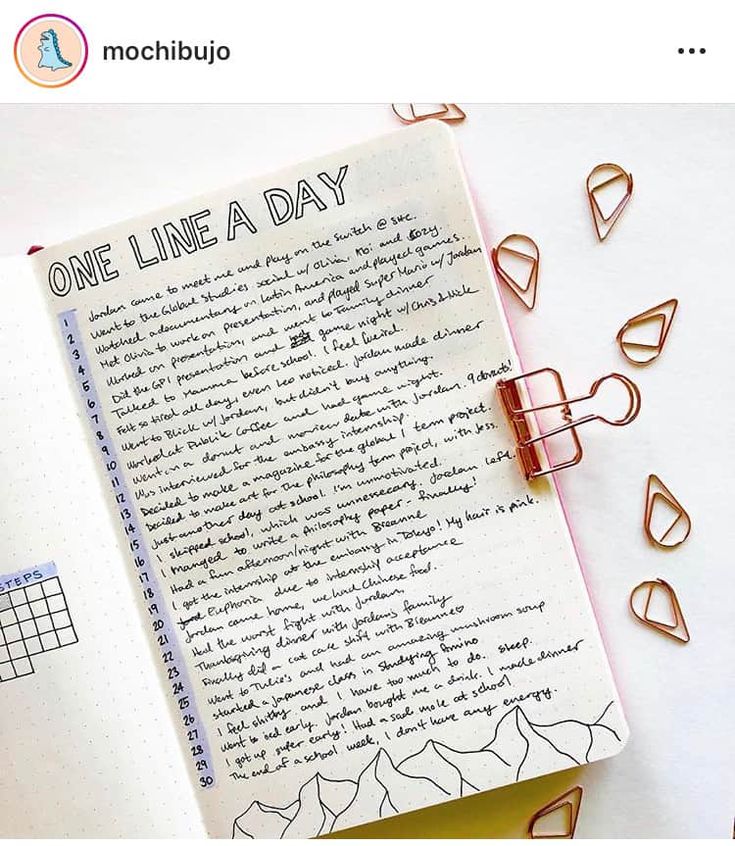 mochibujo
ONE LINE A DAY
1 Jordan came to meet me and play on the Switch @
2 Went to the Global Studies social w/ Olivia, Koi and Cozy.
3 Watched a documentary on Latin America and played games.
4 Met Olivia to work on presentation, and played Super Mario w/ Jordan
5 Worked on presentation, and went to Family dinner
6 Did the GPI presentation and game night w/ Chris & Nick
7 Talked to Mamma before school. I feel weird.
8 Felt so tired all day, even Leo noticed. Jordan made dinner
9 Went to Blick w/ Jordan, but didn't buy anything.
10 Worked at Publik Coffee and had game night.
11 Went on a donut and movie date with Jordan. 9 donuts!
12 Was interviewed for the embassy internship.
13 Decided to make a magazine for the global 1 term project.
14 Decided to make art for the philosophy term project, with Jess.
15 Just another day at school. I'm unmotivated.
16 I skipped school, which was unnessecary. Jordan left.
17 I managed to write a Philosophy paper - finally!
18 Had a fun afternoon/night with Breanne
19 I got the internship at the embassy in Tokyo! My hair is pink.
20 Euphoria due to internship acceptance
21 Jordan came home, we had Chinese food.
22 Had the worst fight with Jordan,
23 Thanksgiving dinner with Jordan's family
24 Finally did a cat care shift with Breanne
25 Went to Tulie's and had an amazing mushroom soup
26 Started a Japanese class in Studying
27 I feel shitty and I have too much to do. Sleep.
28 Went to bed early. Jordan bought me a drink. I made dinner
29 I got up super early! Had a at school
30 The end of a school week, I don't have any energy.
STEPS